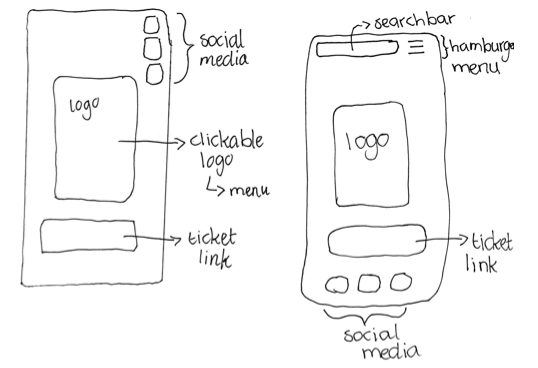 social
media
logo
clickable
logo
menu
ticket
link
searchbar
hamburger
menu
logo
ticket
link
social
media